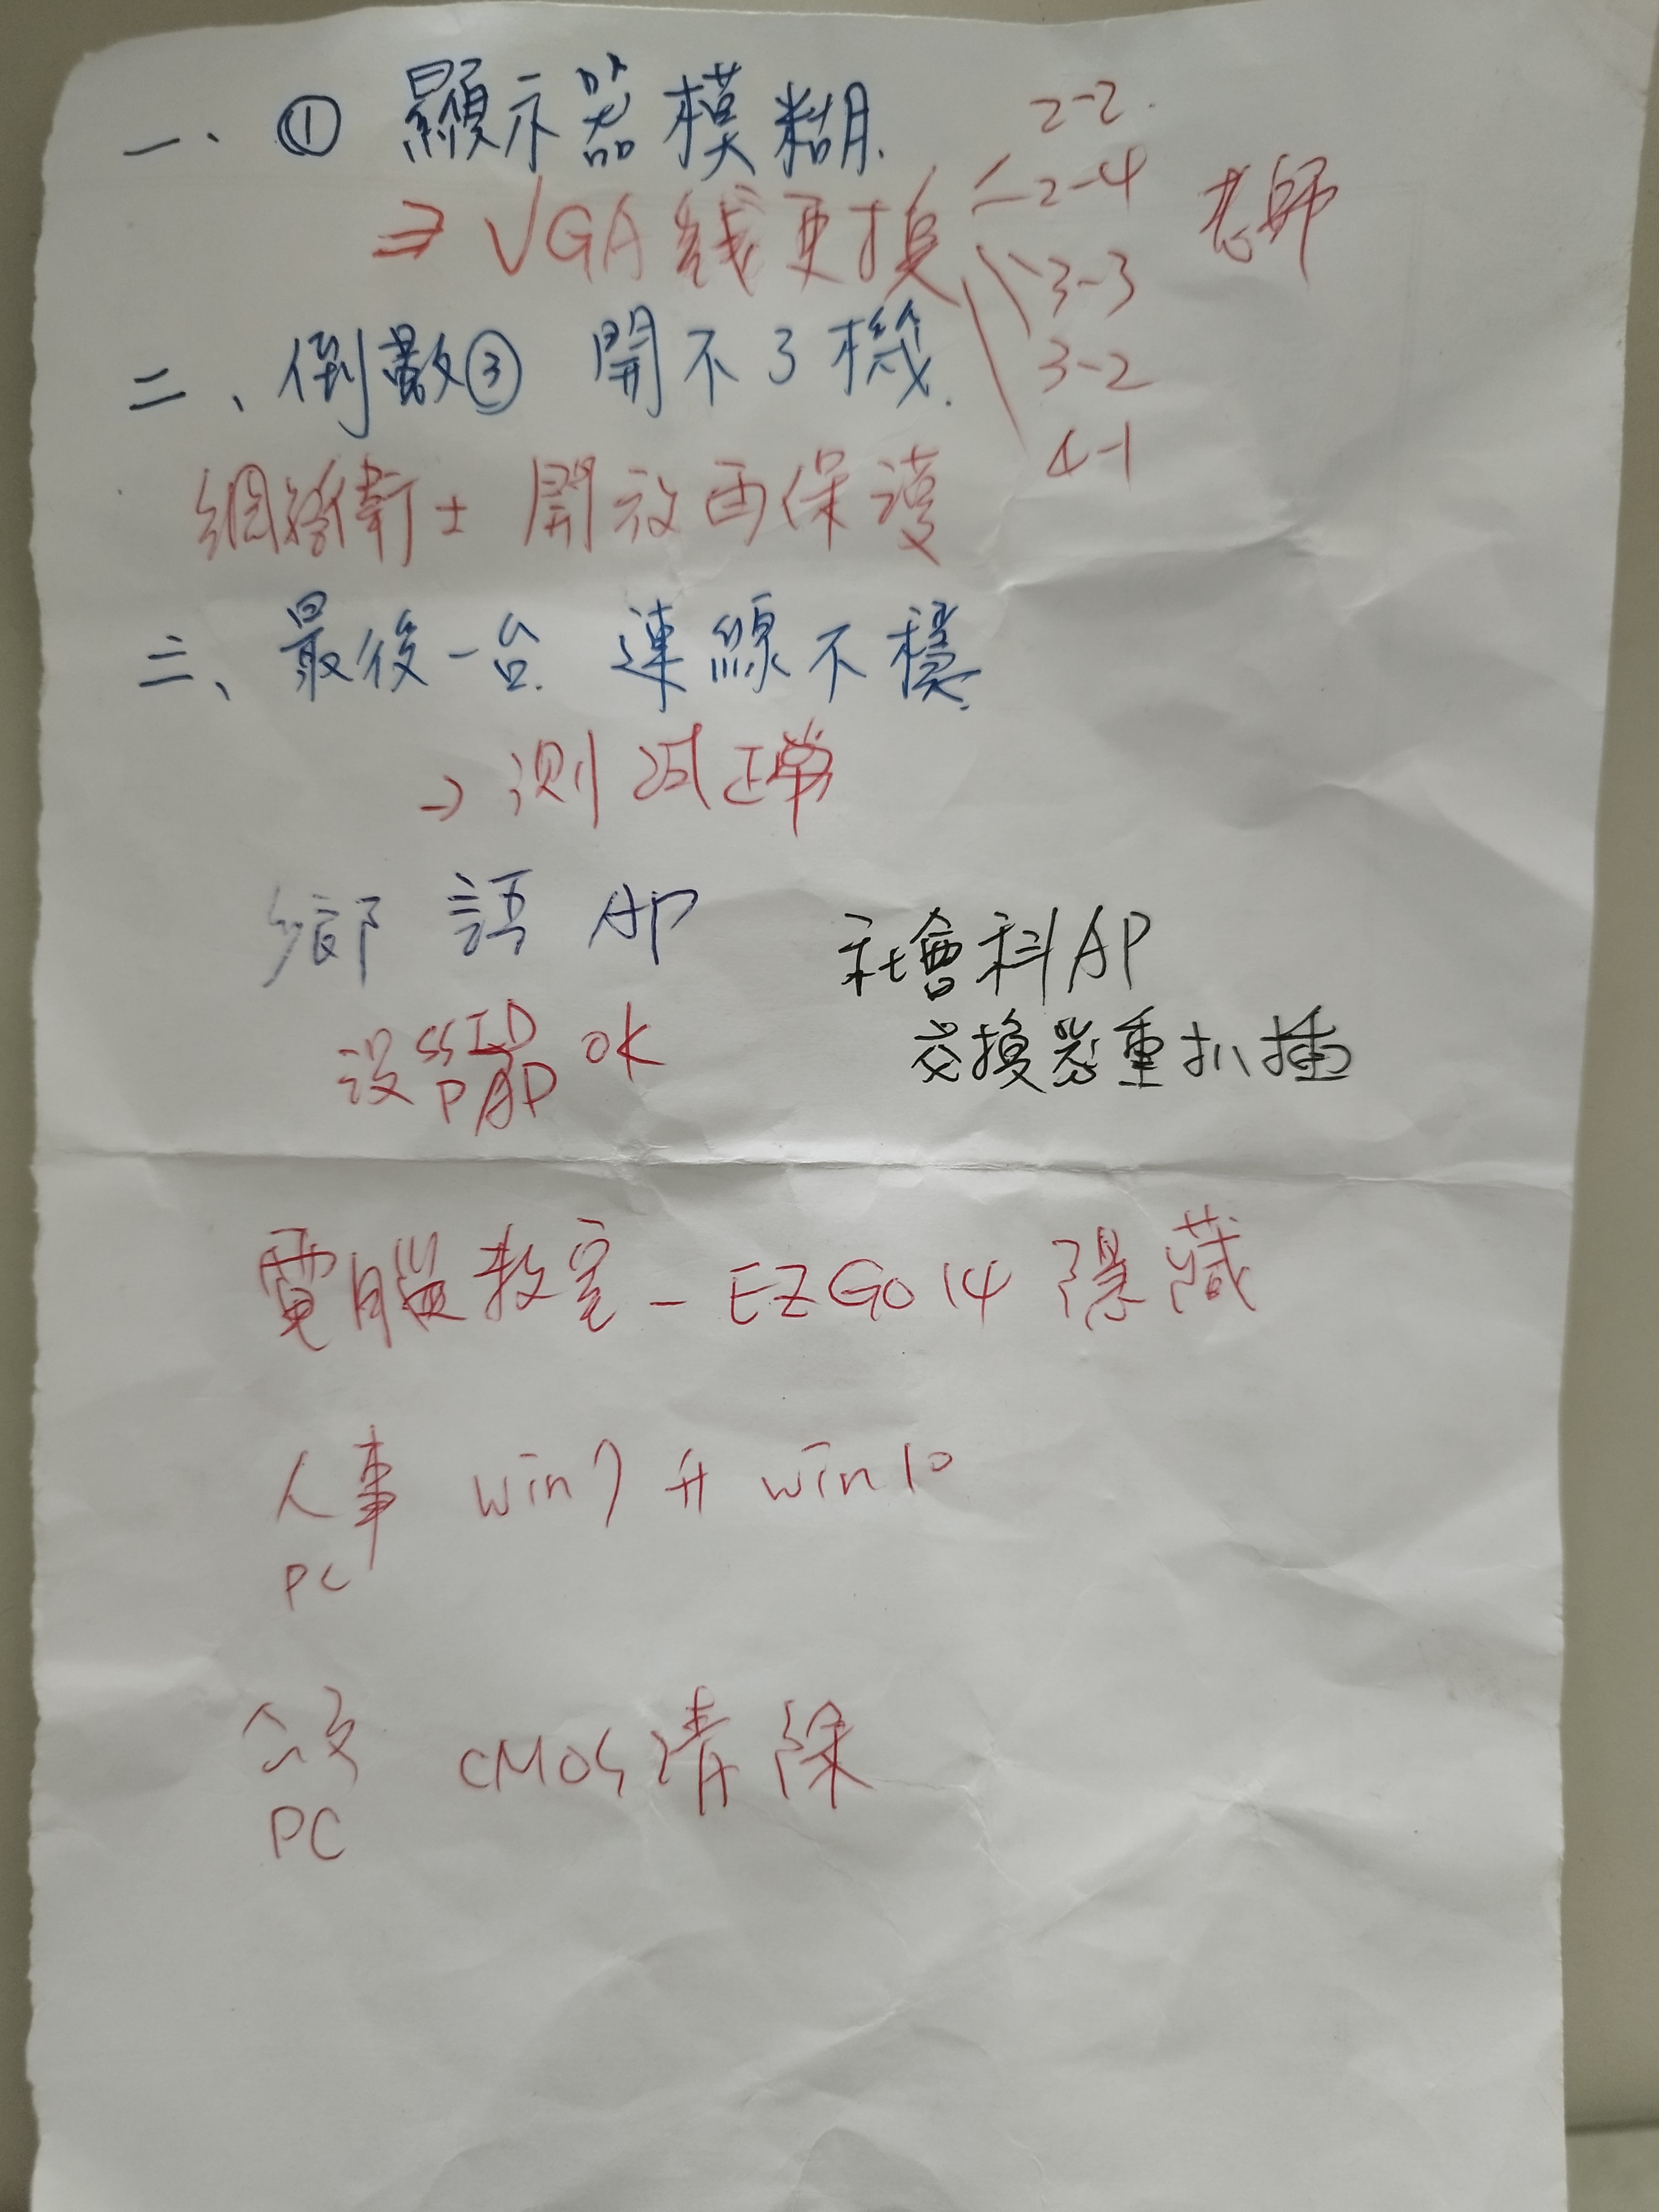 一、① 顯示器模糊.
⇒ VGA 線更換
2-2.
2-4
3-3
3-2
4-1
老師
二、倒數③ 開不了機.
網路衛士 開放再保護
三、最後一台. 連線不穩.
→ 測試正常
鄉語 AP
設 SSID OK
社會科AP
交換器重扒插
電腦教室 - EZGO 14 隱藏
人事 win7 升 win10
PC
公文 CMOS清除
PC